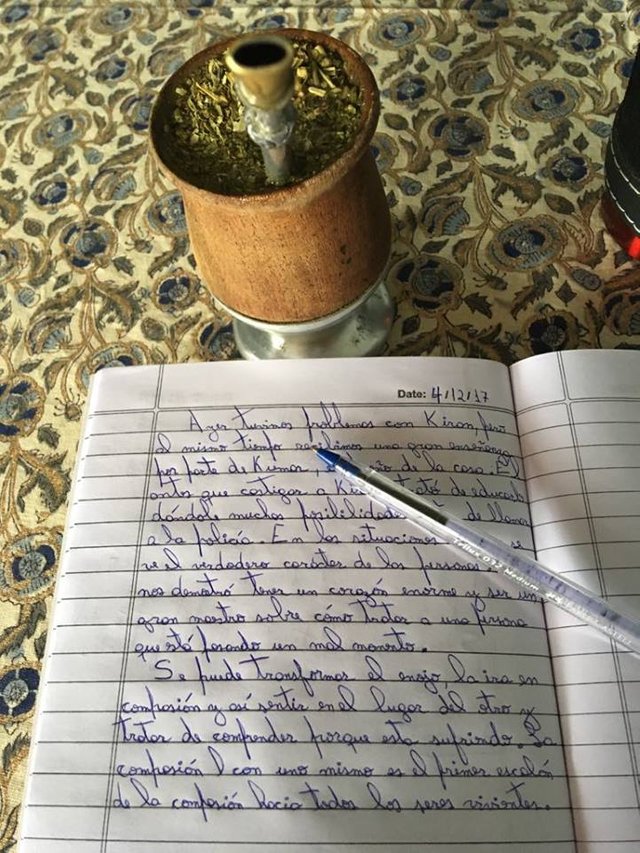 Date: 4/2/17
Ayer tuvimos problemas con Kiran, pero
al mismo tiempo recibimos una gran enseñanza
por parte de Kumar, de la casa. El
antes que castigar a trató de educarlo
dándole muchas posibilidades de llamar
a la policía. En las situaciones se
ve el verdadero carácter de las personas
nos demostró tener un corazón enorme y ser un
gran maestro sobre cómo tratar a una persona
que está pasando un mal momento.
Se puede transformar el enojo, la ira en
compasión y así sentir en el lugar del otro y
tratar de comprender porque esta sufriendo. La
compasión con uno mismo es el primer escalón
de la compasión hacia todos los seres vivientes.